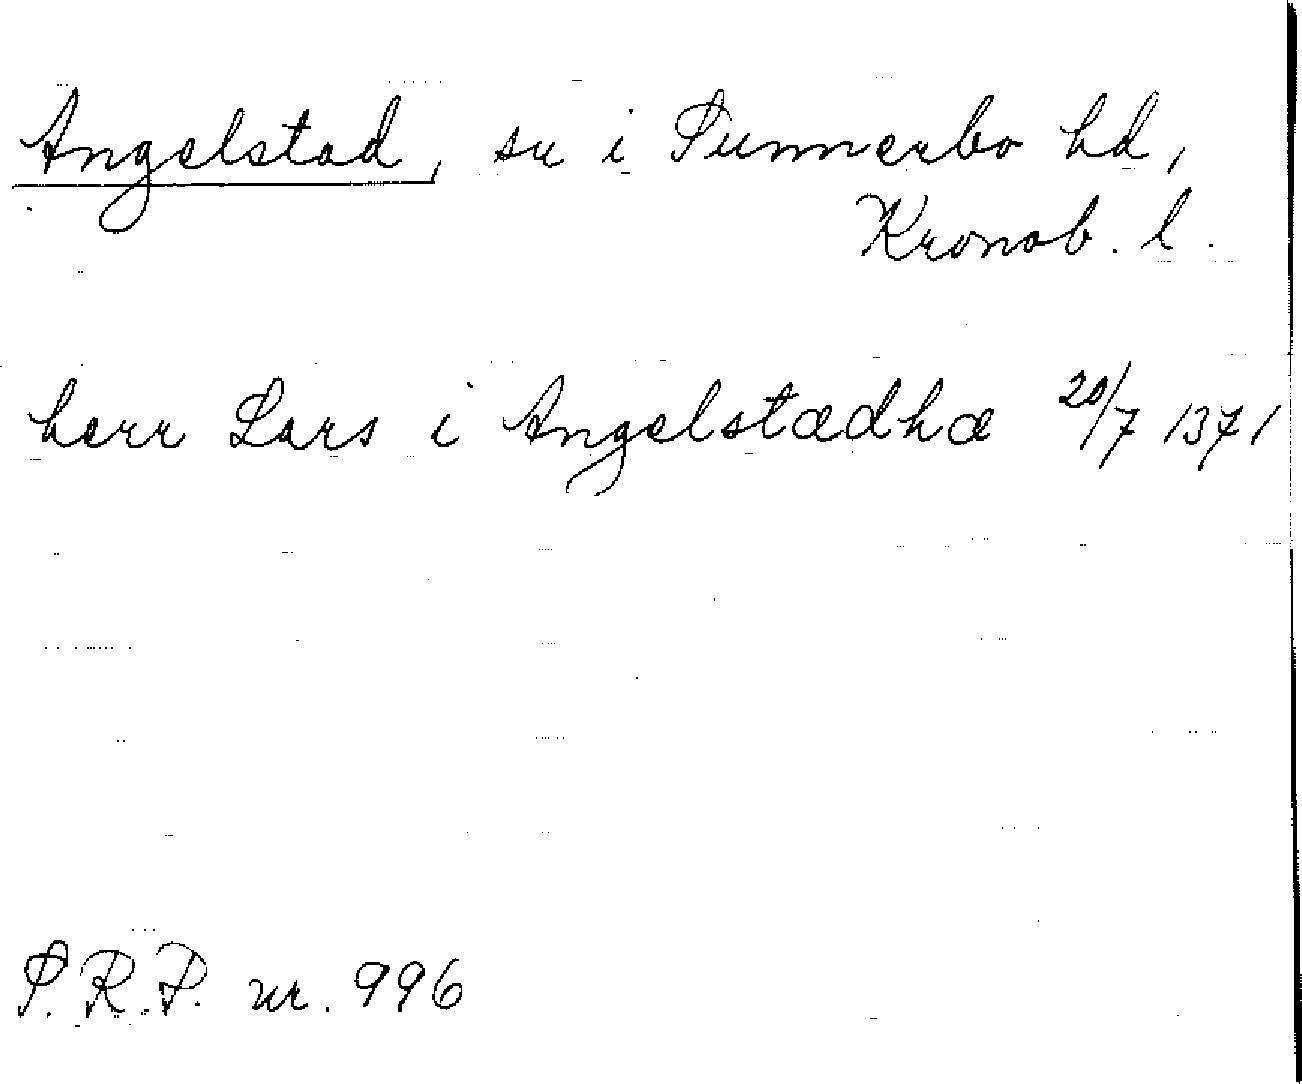 Angelstad, sn i Sunnerbo hd,
Kronob. l.
herr Lars i Angelstædhæ 20/7 1371
S.R.P. nr. 996